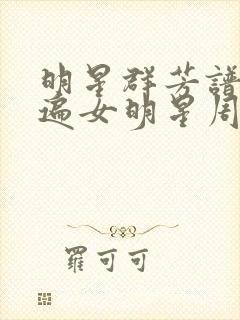 明星群芳譜
遍女明星周
羅可可